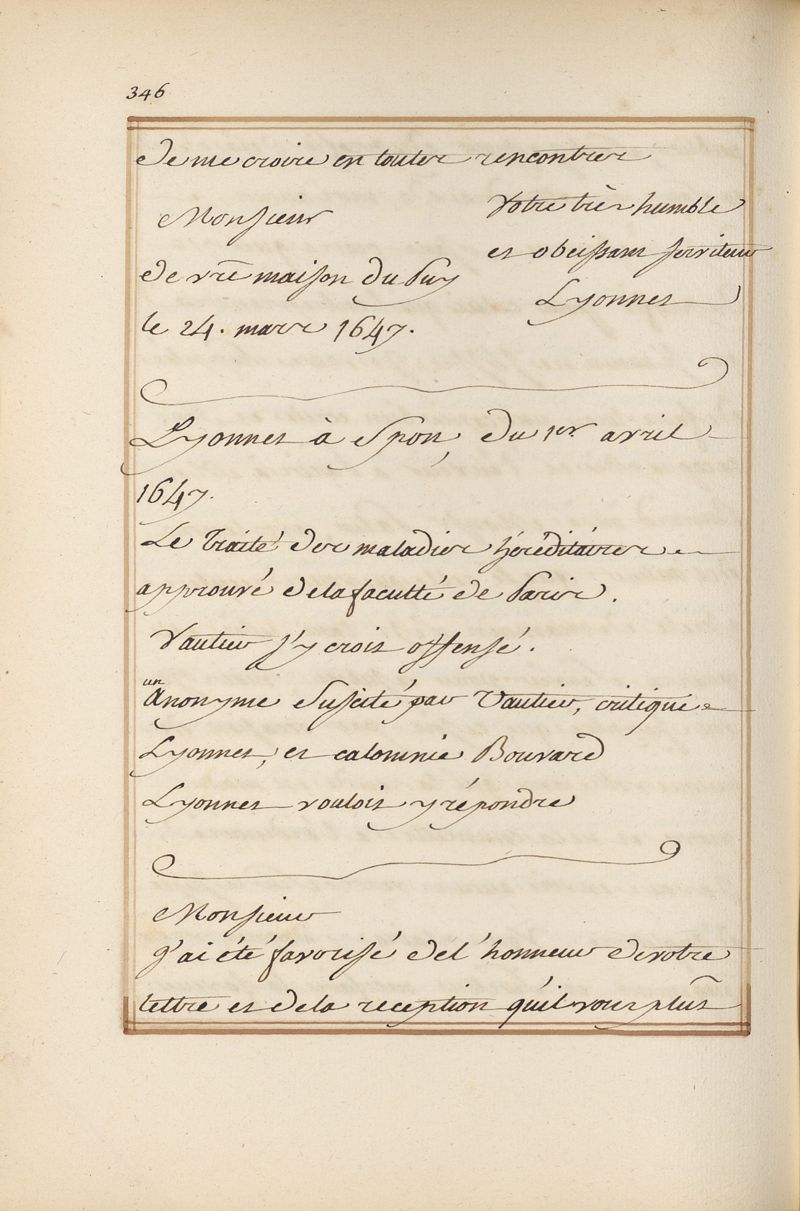 346
de me croire en toutes rencontres
Monsieur
Votre très humble
et obeissant serviteur
de vrẽ maison du Puy
Lyonnet
le 24. mars 1647.
Lyonnet à Spon, du 1er avril
1647.
Le Traité des maladies héréditaires
approuvé de la faculté de Paris.
Vautier s'y croit offensé.
un
Anonyme suscité par Vautier, critique
Lyonnet, et calomnie Bouvard
Lyonnet vouloit y répondre
Monsieur
j'ai été favorisé de l'honneur de votre
lettre et de la reception qu'il vous plût